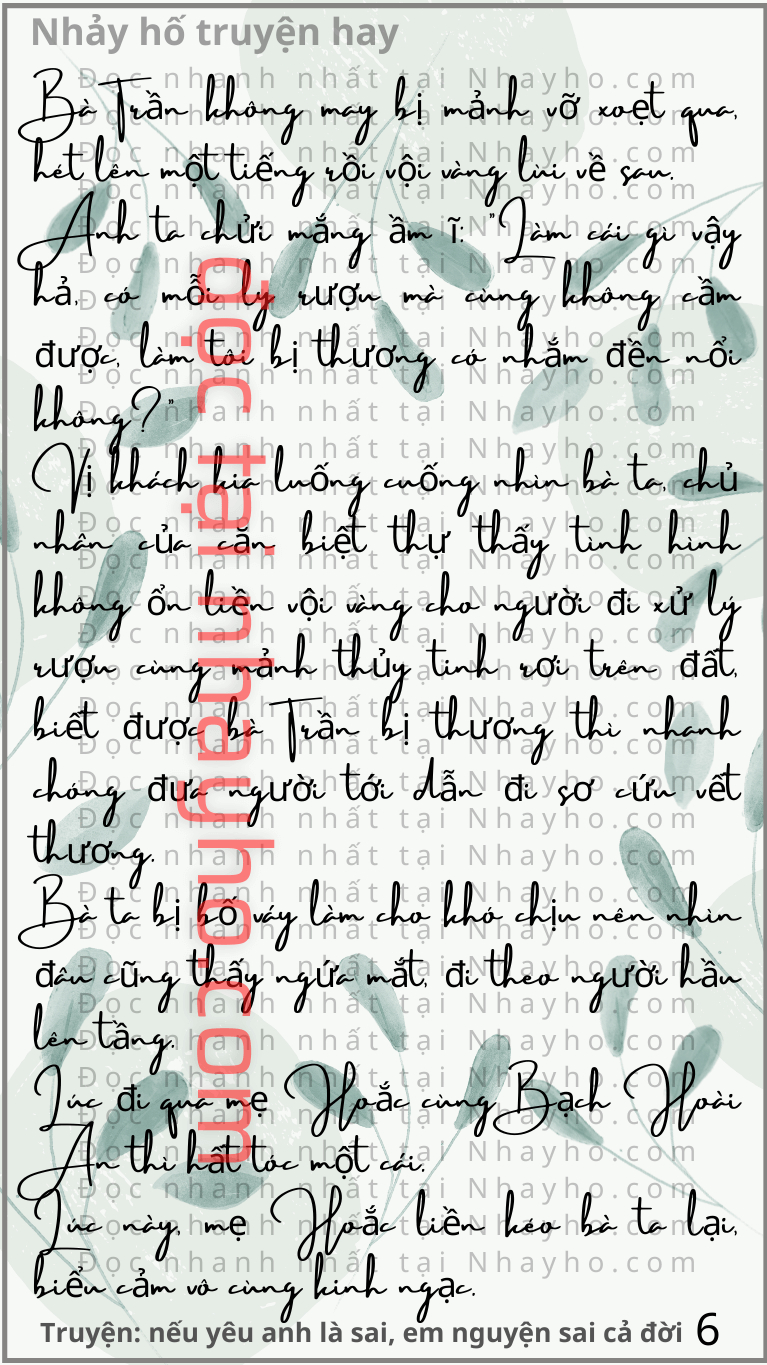 Nhảy hố truyện hay
Bà Trần không may bị mảnh vỡ xoẹt qua,
hét lên một tiếng rồi vội vàng lùi về sau.
Anh ta chửi mắng ầm ĩ: "Làm cái gì vậy
hả, có mỗi ly rượu mà cùng không cầm
được, làm tôi bị thương có nhắm đền nổi
không?"
Vị khách kia luống cuống nhìn bà ta, chủ
nhân của căn biệt thự thấy tình hình
không ổn liền vội vàng cho người đi xử lý
rượu cùng mảnh thủy tinh rơi trên đất,
biết được bà Trần bị thương thì nhanh
chóng đưa người tới dẫn đi sơ cứu vết
thương.
Bà ta bị bố váy làm cho khó chịu nên nhìn
đâu cũng thấy ngứa mắt, đi theo người hầu
lên tầng.
Lúc đi qua mẹ Hoắc cùng Bạch Hoài
An thì hất tóc một cái.
Lúc này, mẹ Hoắc liền kéo bà ta lại,
biểu cảm vô cùng kinh ngạc.
Truyện: nếu yêu anh là sai, em nguyện sai cả đời 6
đọc tại nhayho.com
Đọc nhanh nhất tại Nhayho.com